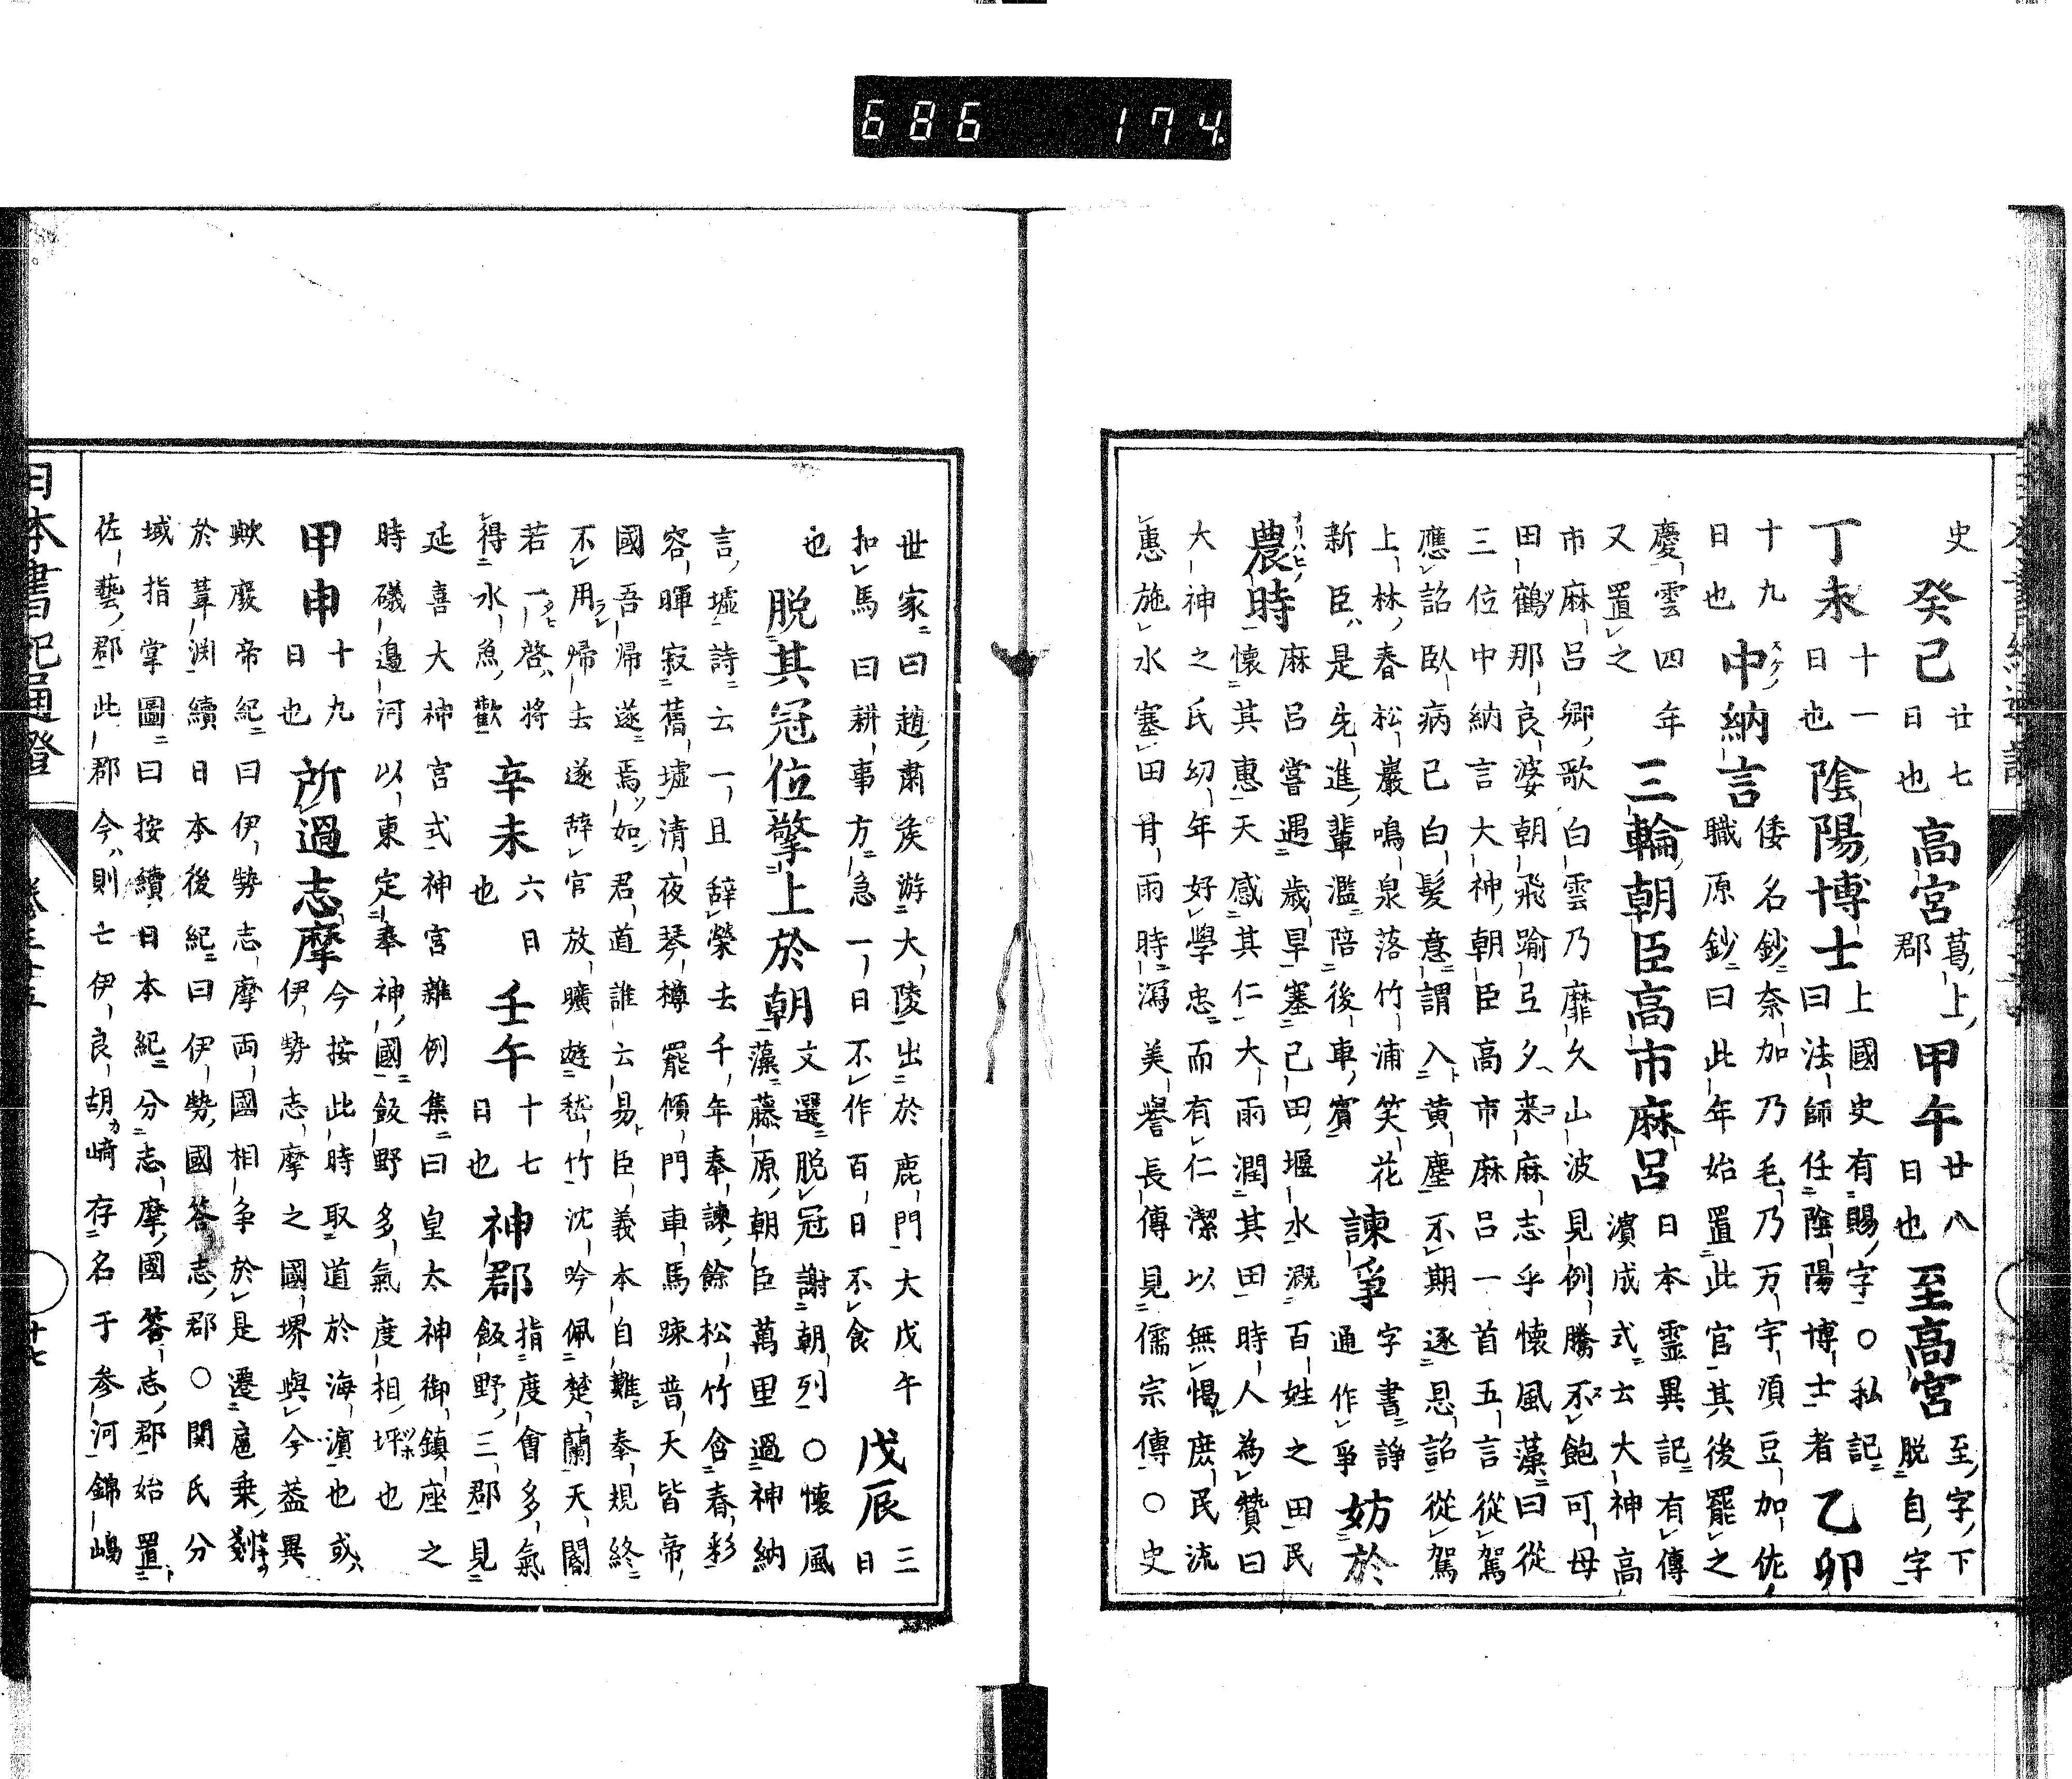 686 174
史癸巳廿七日也高宮葛上郡甲午廿八日也至高宮至字下脱自字
丁未十一日也陰陽博士上國史有賜字○私記曰法師任陰陽博士者乙卯
十九日也中納言倭名鈔奈加乃毛乃万宇須豆加佐職原鈔曰此年始置此官其後罷之
慶雲四年又置之三輪朝臣高市麻呂日本靈異記有傳濱成式云大神高
市麻呂卿歌白雲乃靡久山波見例騰不飽可母
田鶴那良婆朝飛踰弖夕来麻志乎懷風藻曰從
三位中納言大神朝臣高市麻呂一首五言從駕
應詔臥病已白髮意謂入黄塵不期逐恩詔從駕
上林春松巖鳴泉落竹浦笑花
新臣是先進輩濫陪後車賓諫爭字書諍通作爭妨於
農時麻呂嘗遇歳旱塞己田堰水漑百姓之田民
懷其惠天感其仁大雨潤其田時人為贊曰
大神之氏幼年好學忠而有仁潔以無惕庶民流
惠施水塞田甘雨時瀉美譽長傳見儒宗傳○史
世家曰趙肅矦游大陵出於鹿門大戊午
扣馬曰耕事方急一日不作百日不食戊辰三日
也脱其冠位擎上於朝文選脱冠謝朝列○懷風藻藤原朝臣萬里過神納
言墟詩云一旦辞榮去千年奉諫餘松竹含春彩
容暉寂舊墟清夜琴樽罷傾門車馬踈普天皆帝
國吾歸遂焉如君道誰云易臣義本自難奉規終
不用歸去遂辞官放曠遊嵆竹沈吟佩楚蘭天閽
若一啓將得水魚歡辛未六日也壬午十七日也神郡指度會多氣飯野三郡見
延喜大神宮式神宮雜例集曰皇太神御鎮座之
時礒邉河以東定奉神國飯野多氣度相坪也
甲申十九日也所過志摩今按此時取道於海濱也或伊勢志摩之國堺與今葢異
歟廢帝紀曰伊勢志摩両國相争於是遷扈乗剗
於葺渕續日本後紀曰伊勢國答志郡○関氏分
域指掌圖曰按續日本紀分志摩國答志郡始置
佐藝郡此郡今則亡伊良胡﨑存名于参河錦嶋
日本書紀通證
卷三十五
十七